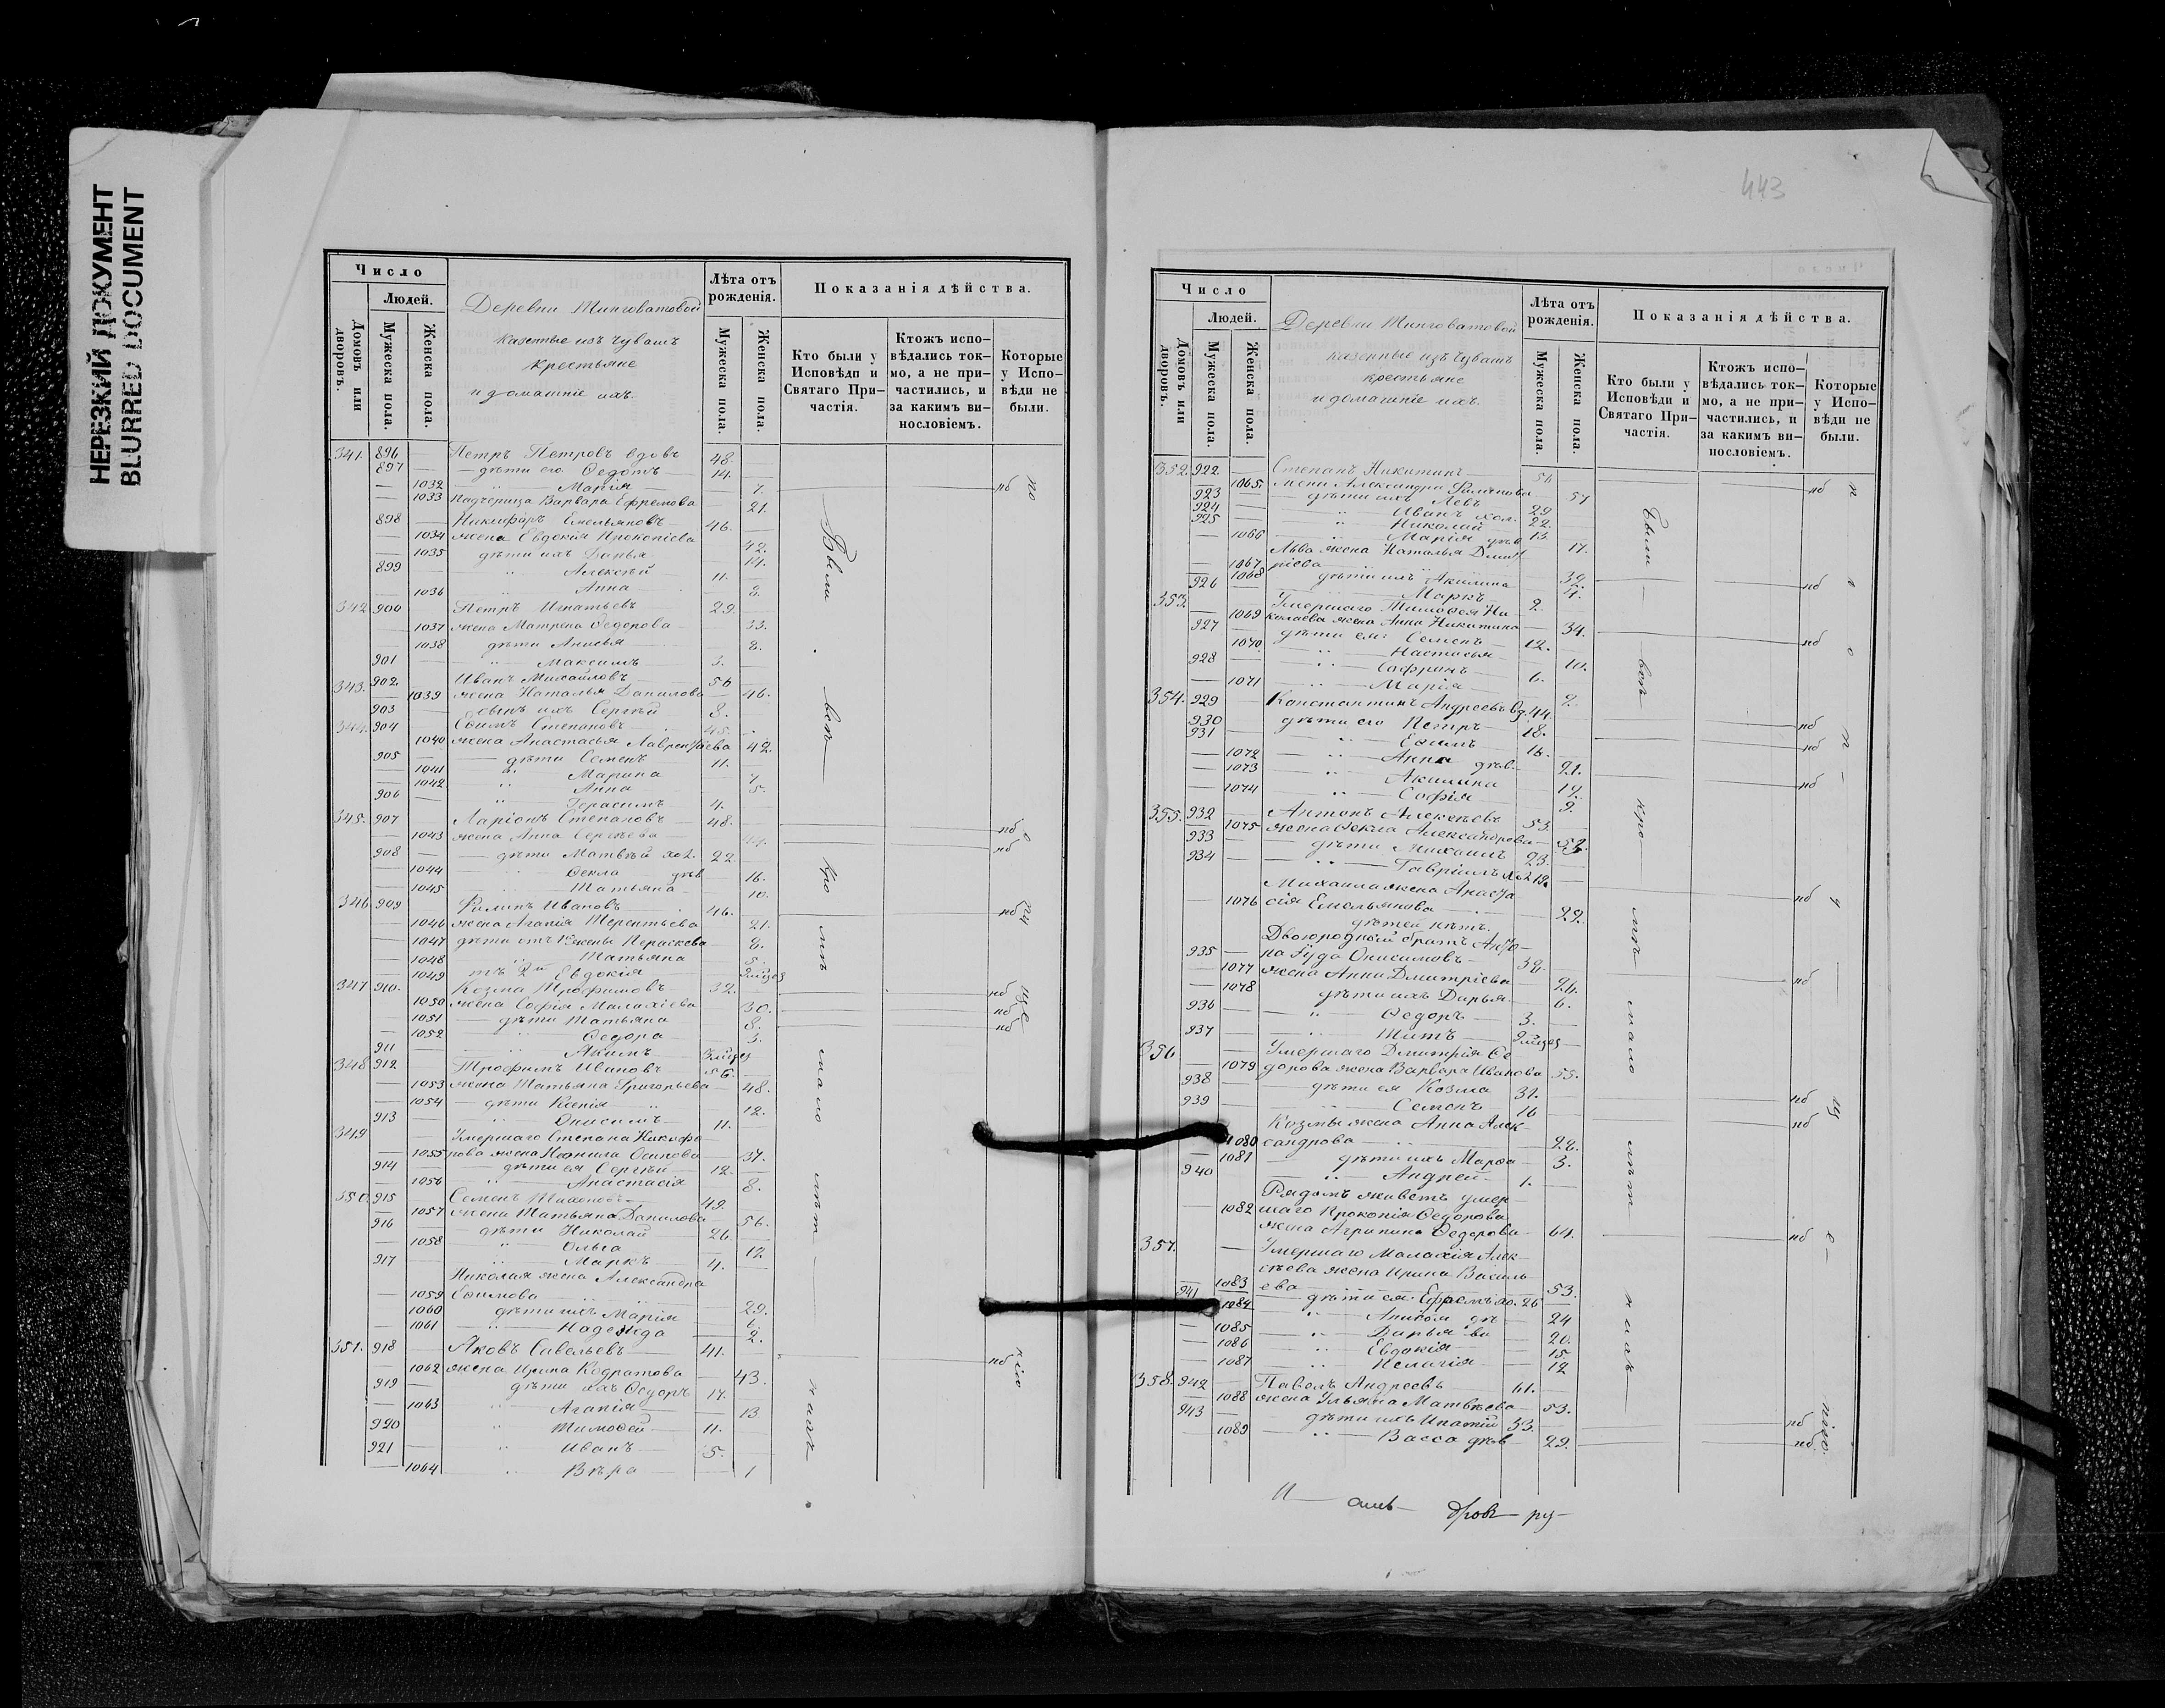 НЕРЕЗКИЙ ДОКУМЕНТ
BLURRED DOCUMENT
Число
Людей.
Домовъ или дворовъ.
Мужеска пола.
Женска пола.
Деревни
казенные изъ чувашъ
крестьяне
и домашніе ихъ.
Лѣта отъ рожденія.
Мужеска пола.
Женска пола.
Показанія дѣйства.
Кто были у Исповѣди и Святаго При-частія.
Ктожъ испо-вѣдались ток-мо, а не при-частились, и за какимъ ви-нословіемъ.
Которые у Испо-вѣди не были.
341. 896 Петръ Петровъ вдовъ 48.
897 дѣти его Ѳедотъ 14.
1032 Марія 7. нб
1033 Падчерица Варвара Ефремова 21.
898 Никифоръ Емельяновъ 46.
1034 жена Евдокія Прокопіева 42.
1035 дѣти ихъ Дарья 14.
899 Алексѣй 11.
1036 Анна 8.
342 900 Петръ Игнатьевъ 29.
1037 жена Матрена Ѳедорова 33.
1038 дѣти Анисья 8.
901 Максимъ 3.
343. 902 Иванъ Михайловъ 56
1039 жена Наталья Данилова 46.
903 сынъ ихъ Сергѣй 8.
344. 904 Ефимъ Степановъ 45.
1040 жена Анастасья Лаврентьева 42.
905 дѣти Семенъ 11.
1041 Марина 7.
1042 Анна 5.
906 Герасимъ 4.
345. 907 Ларіонъ Степановъ 48. нб
1043 жена Анна Сергѣева 44. нб
908 дѣти Матвѣй хол. 22.
1044 Ѳекла дѣв 16.
1045 Татьяна 10.
346 909 Филипъ Ивановъ 46. нб
1046 жена Агапія Терентьева 21.
1047 дѣти отъ 1 жены Параскева 8.
1048 Татьяна 5.
1049 отъ 2й Евдокія
347 910. Козма Трофимовъ 32. нб
1050 жена Софія Малахіева 30. нб
1051 дѣти Татьяна 8. нб
1052 Ѳедора 3.
911 Акимъ
348 912 Трофимъ Ивановъ 56.
1053 жена Татьяна Григорьева 48.
1054 дѣти Ксенія 12.
913 Онисимъ 11.
349 Умершаго Степана Никифо
1055 рова жена Неонила Осипова 37.
914 дѣти ея Сергѣй 12.
1056 Анастасія 8.
350. 915 Семенъ Тихоновъ 49.
1057 жена Татьяна Данилова 56.
916 дѣти Николай 26.
1058 Ольга 12
917 Маркъ 4.
Николая жена Александра
1059 Ефимова 29.
1060 дѣти ихъ Марія 6.
1061 Надежда 2.
351. 918 Яковъ Савельевъ 41. нб
1062 жена Ирина Кодратова 43.
919 дѣти ихъ Ѳедоръ 17.
1063 Агапія 13
920 Тимоѳей 11.
921 Иванъ 5.
1064 Вѣра 1
443
Число
Людей.
Домовъ или дворовъ.
Мужеска пола.
Женска пола.
Деревни
казенные изъ чувашъ
крестьяне
и домашніе ихъ.
Лѣта отъ рожденія.
Мужеска пола.
Женска пола.
Показанія дѣйства.
Кто были у Исповѣди и Святаго При-частія.
Ктожъ испо-вѣдались ток-мо, а не при-частились, и за какимъ ви-нословіемъ.
Которые у Испо-вѣди не были.
352. 922 Степанъ Никитинъ 56 нб
1065. жена Александра 57
923 дѣти ихъ Левъ 29
924 Иванъ хол. 22.
925 Николай 13.
1066 Марія дѣв 17.
Льва жена Наталья Дмит
1067 ріева 32.
1068 дѣти ихъ Акилина 4. нб
926 Маркъ 2.
353. Умершаго Тимоѳея Ни
1069 колаева жена Анна Никитина 34.
927 дѣти ея: Семенъ 12. нб
1070 Настасья 10.
928 Софронъ 6.
1071 Марія 2.
354. 929 Константинъ Андреевъ вд. 44. нб
930 дѣти его Петръ 18. нб
931 Ефимъ 16.
1072 Анна дѣв. 21. нб
1073 Акилина 17.
1074 Софія 9.
355. 932 Антонъ Алексѣевъ 53.
1075 жена Ѳекла Александрова 52.
933 дѣти Михаилъ 23.
934 Гавріилъ хол 19.
Михаила жена Анаста
1076 сія Емельянова 22. нб
дѣтей нѣтъ.
Двоюродный братъ Анто-
935 на Іуда Онисимовъ 32.
1077 жена Анна Дмитріева 26. нб
1078 дѣти ихъ Дарья 6.
936 Ѳедоръ 3.
937 Титъ
356 Умершаго Дмитрія Ѳе
1079 дорова жена Варвара Иванова 55.
938 дѣти ея Козма 31. нб
939 Семенъ 16 нб
Козмы жена Анна Алек-
1080 сандрова 28.
1081 дѣти ихъ Марѳа 3.
940 Андрей 1.
Рядомъ живетъ умер-
1082 шаго Прокопія Ѳедорова
жена Агрипина Ѳедорова 64. нб
357. Умершаго Малахія Алек-
сѣева жена Ирина Василь-
1083 ева 53.
941 дѣти ея: Ефремъ хо. 26
1084 24
1085 Дарья 20.
1086 Евдокія 15
1087 Пелагія 12
358. 942 Павелъ Андреевъ 61.
1088 жена Ульяна Матвѣева 53.
943 дѣти ихъ Игнатій 33. нб
1089 Васса дѣв 29. нб